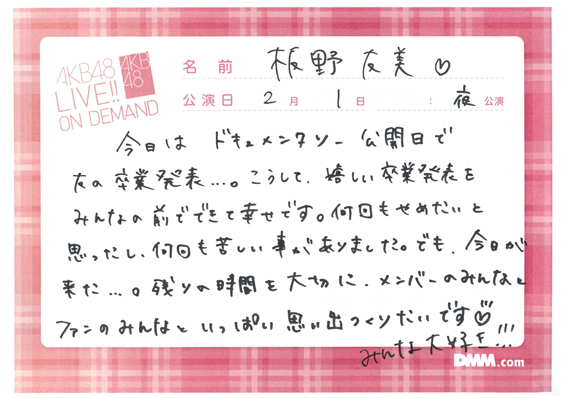 AKB48
LIVE!!
ON DEMAND
AKB
48
名前 板野友美♡
公演日 2月1日 : 夜公演
今日は ドキュメンタリー 公開日で
友の卒業発表…。こうして、嬉しい卒業発表を
みんなの前でできて幸せです。何回もやめたいと
思ったし、何回も苦しい事がありました。でも、今日が
来た…。残りの時間を大切に、メンバーのみんなと
ファンのみんなといっぱい思い出つくりたいです♡
みんな大好き!!!
DMM.com